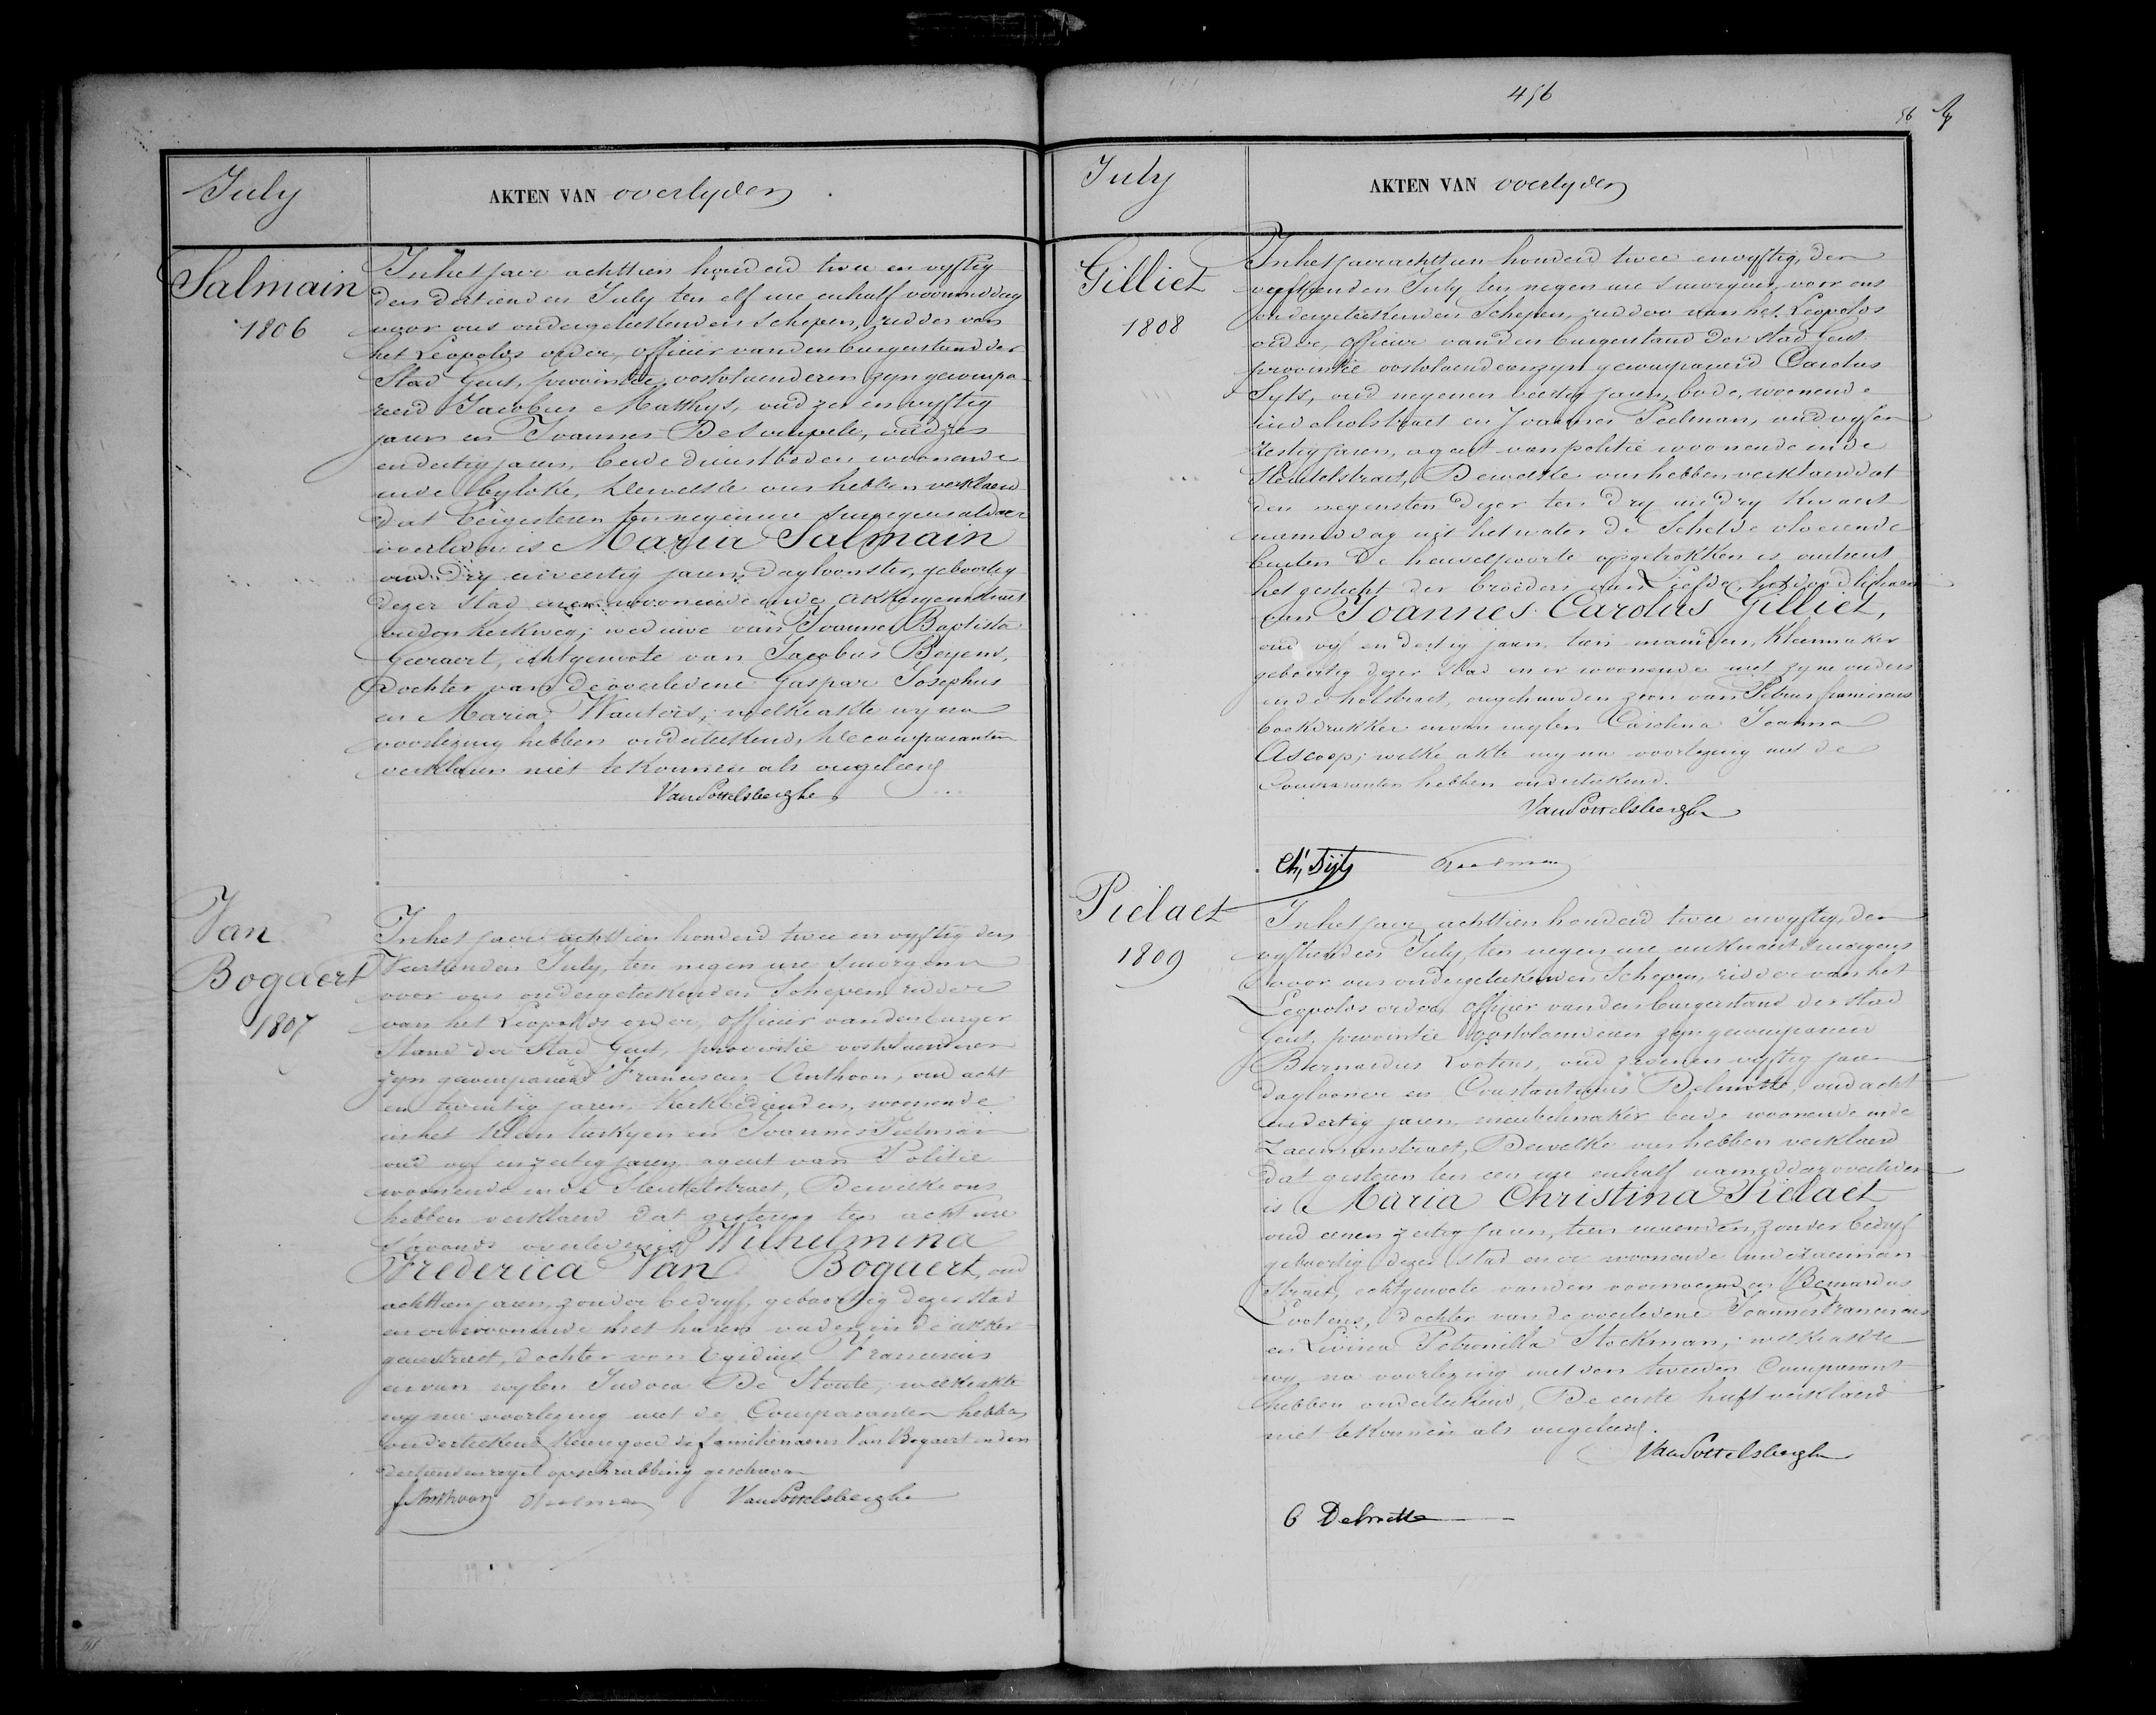 July
AKTEN VAN overlyden
Salmain
1806
In het jaer achttien honderd twee en vyftig
den dertienden July ten elf ure en half voormiddag
voor ons ondergeteekenden Schepen, ridder van
het Leopolds order, officier van den burgerstand der
Stad Gent, provintie oostvlaenderen zyn gecompa-
reerd Jacobus Matthys, oud zes en vyftig
jaren en Joannes De, oud zes
en dertig jaren, beide dienstboden woonende
in de Byloke, Dewelke ons hebben verklaerd
dat eergisteren ten negen ure smorgens aldaer
overleden is Maria Salmain
oud dry en veertig jaren, dagloonster, geboortig
dezer stad en er woonende in de Akkergemstraet
buiten kerkweg; weduwe van Joannes Baptista
Geeraert, echtgenoote van Jacobus Beyens,
Dochter van de overledene Gaspar Josephus
en Maria Wauters; welke akte wy na
voorlezing hebben onderteekend, de comparanten
verklaren niet te konnen als ongeleerd
Van Pottelsberghe
Van
Bogaert
1807
In het jaer achttien honderd twee en vyftig den
Veertienden July, ten negen ure smorgens
voor ons ondergeteekenden Schepen, ridder
van het Leopolds order, officier van den burger
stand der Stad Gent, provintie oostvlaenderen
zyn gecompareerd Franciscus Anthoon, oud acht
en twintig jaren, Kerkbedienden, woonende
in het Klein turkyen en Joannes Peelman
oud vyf en zestig jaren agent van Politie
woonende in de Sleutelstraet, Dewelke ons
hebben verklaerd dat gisteren ten acht ure
s'avonds overleden is Wilhelmina
Frederica Van Bogaert, oud
achttien jaren, zonder bedryf, geboortig dezer stad
en er woonende met haren vader in de akker-
gemstraet, dochter van Egidius Franciscus
en van wylen Judoca De Stoute, welke akte
wy na voorlezing met de Comparanten hebben
onderteekend, Keure goed de familienaem Van Bogaert in den
dertienden regel op schrabbing geschreven
f Anthoon Peelman Van Pottelsberghe
456
56
July
AKTEN VAN overlyden
Gilliet
1808
In het jaer achttien honderd twee en vyftig, den
vyftienden July ten negen ure smorgens, voor ons
ondergeteekenden Schepen, ridder van het Leopolds
order, officier van den burgerstand der stad Gent
provintie oostvlaenderen zyn gecompareerd Carolus
Syts, oud negen en veertig jaren, bode, woonende
in de holstraet en Joannes Peelman, oud vyf en
zestig jaren, agent van politie woonende in de
Sleutelstraet, Dewelke ons hebben verklaerd dat
den negensten dezer ten dry ure dry kwaert
namiddag uit het water de Schelde vloeiende
buiten De heuvelpoorte opgetrokken is omtrent
het gesticht der broeders van Liefde, het dood lichaem
van Joannes Carolus Gilliet,
oud vyf en dertig jaren, tien maenden, Kleermaker
geboortig dezer Stad en er woonende met zyne ouders
in de holstraet, ongehuwden zoon van Petrus franciscus
boekdrukker en van wylen Carolina Joanna
Ascoop; welke akte wy na voorlezing met de
Comparanten hebben onderteekend.
Van Pottelsberghe
Ch, Syts Peelman
Pielaet
1809
In het jaer achttien honderd twee en vyftig, den
vyftienden July, ten negen ure en kwaert smorgens
voor ons ondergeteekenden Schepen, ridder van het
Leopolds order officier van den burgerstand der stad
Gent, provintie oostvlaenderen zyn gecompareerd
Bernardus Lootens, oud zeven en vyftig jaren
daglooner en Constantinus Delmotte, oud acht
en dertig jaren, meubelmaker beide woonende in de
Zaeimanstraet, Dewelke ons hebben verklaerd
dat gisteren ten een ure en half namiddag overleden
is Maria Christina Pielaet
oud een en zestig jaren, tien maenden, zonder bedryf
geboortig dezer stad en er woonende in de zaeiman-
straet, echtgenoote van den voornoemden Bernardus
Lootens, dochter van de overledene Joannes Franciscus
en Livina Petronilla Stockman; welke akte
wy na voorlezing met den tweeden Comparant
hebben onderteekend, De eerste heeft verklaerd
niet te konnen als ongeleerd.
Van Pottelsberghe
C Delmotte